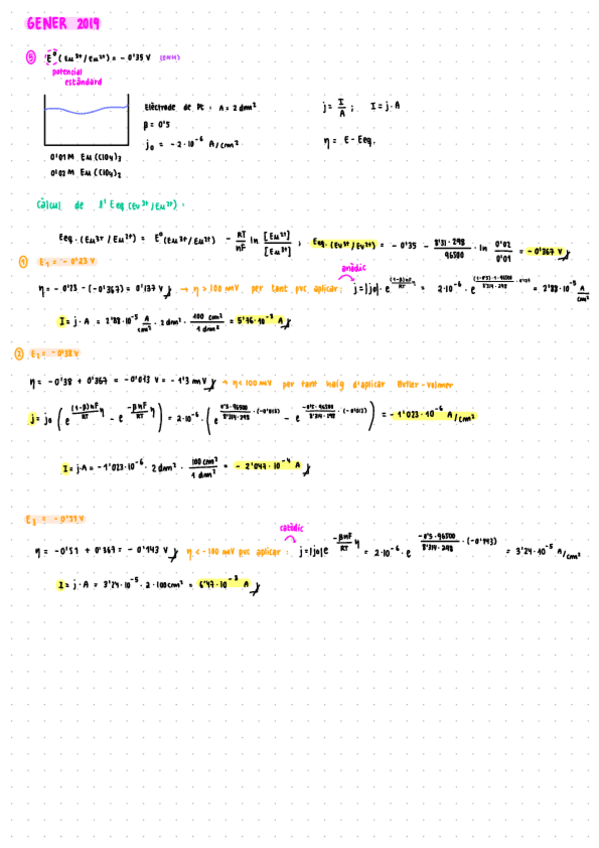 GENER 2019
⑤ E° (Eu³⁺/Eu²⁺) = - 0'35 V (ENH)
potencial
estàndard
Elèctrode de Pt : A = 2 dm²
j = I/A ; I = j·A
β = 0'5
η = E - Eeq.
j₀ = -2·10⁻⁶ A/cm²
0'01 M Eu(ClO₄)₃
0'02 M Eu(ClO₄)₂
Càlcul de l'Eeq (Eu³⁺/Eu²⁺) :
Eeq. (Eu³⁺/Eu²⁺) = E°(Eu³⁺/Eu²⁺) - RT/nF ln [Eu²⁺]/[Eu³⁺] ; Eeq. (Eu³⁺/Eu²⁺) = -0'35 - 8'31·298/96500 · ln 0'02/0'01 = -0'367 V
① E₁ = -0'23 V
anòdic
η = -0'23 - (-0'367) = 0'137 V → η > 100 mV per tant puc aplicar: j = |j₀| · e^((1-β)nF/RT η) = 2·10⁻⁶ · e = 2'88·10⁻⁵ A/cm²
I = j·A = 2'88·10⁻⁵ A/cm² · 2 dm² · 100 cm²/1 dm² = 5'76·10⁻³ A
② E₂ = -0'38 V
η = -0'38 + 0'367 = -0'013 V = -1'3 mV → η < 100 mV per tant haig d'aplicar Butler-Volmer
j = j₀ ( e^((1-β)nF/RT η) - e^(-βnF/RT η) ) = 2·10⁻⁶ · ( e^(0'5·96500/8'314·298 · (-0'013)) - e^(-0'5·96500/8'314·298 · (-0'013)) ) = -1'023·10⁻⁶ A/cm²
I = j·A = -1'023·10⁻⁶ · 2 dm² · 100 cm²/1 dm² = -2'047·10⁻⁴ A
E₃ = -0'51 V
catòdic
η = -0'51 + 0'367 = -0'143 V η < -100 mV puc aplicar : j = |j₀| e^(-βnF/RT η) = 2·10⁻⁶ · e^(-0'5·96500/8'314·298 · (-0'143)) = 3'24·10⁻⁵ A/cm²
I = j·A = 3'24·10⁻⁵ · 2 · 100 cm² = 6'47·10⁻³ A